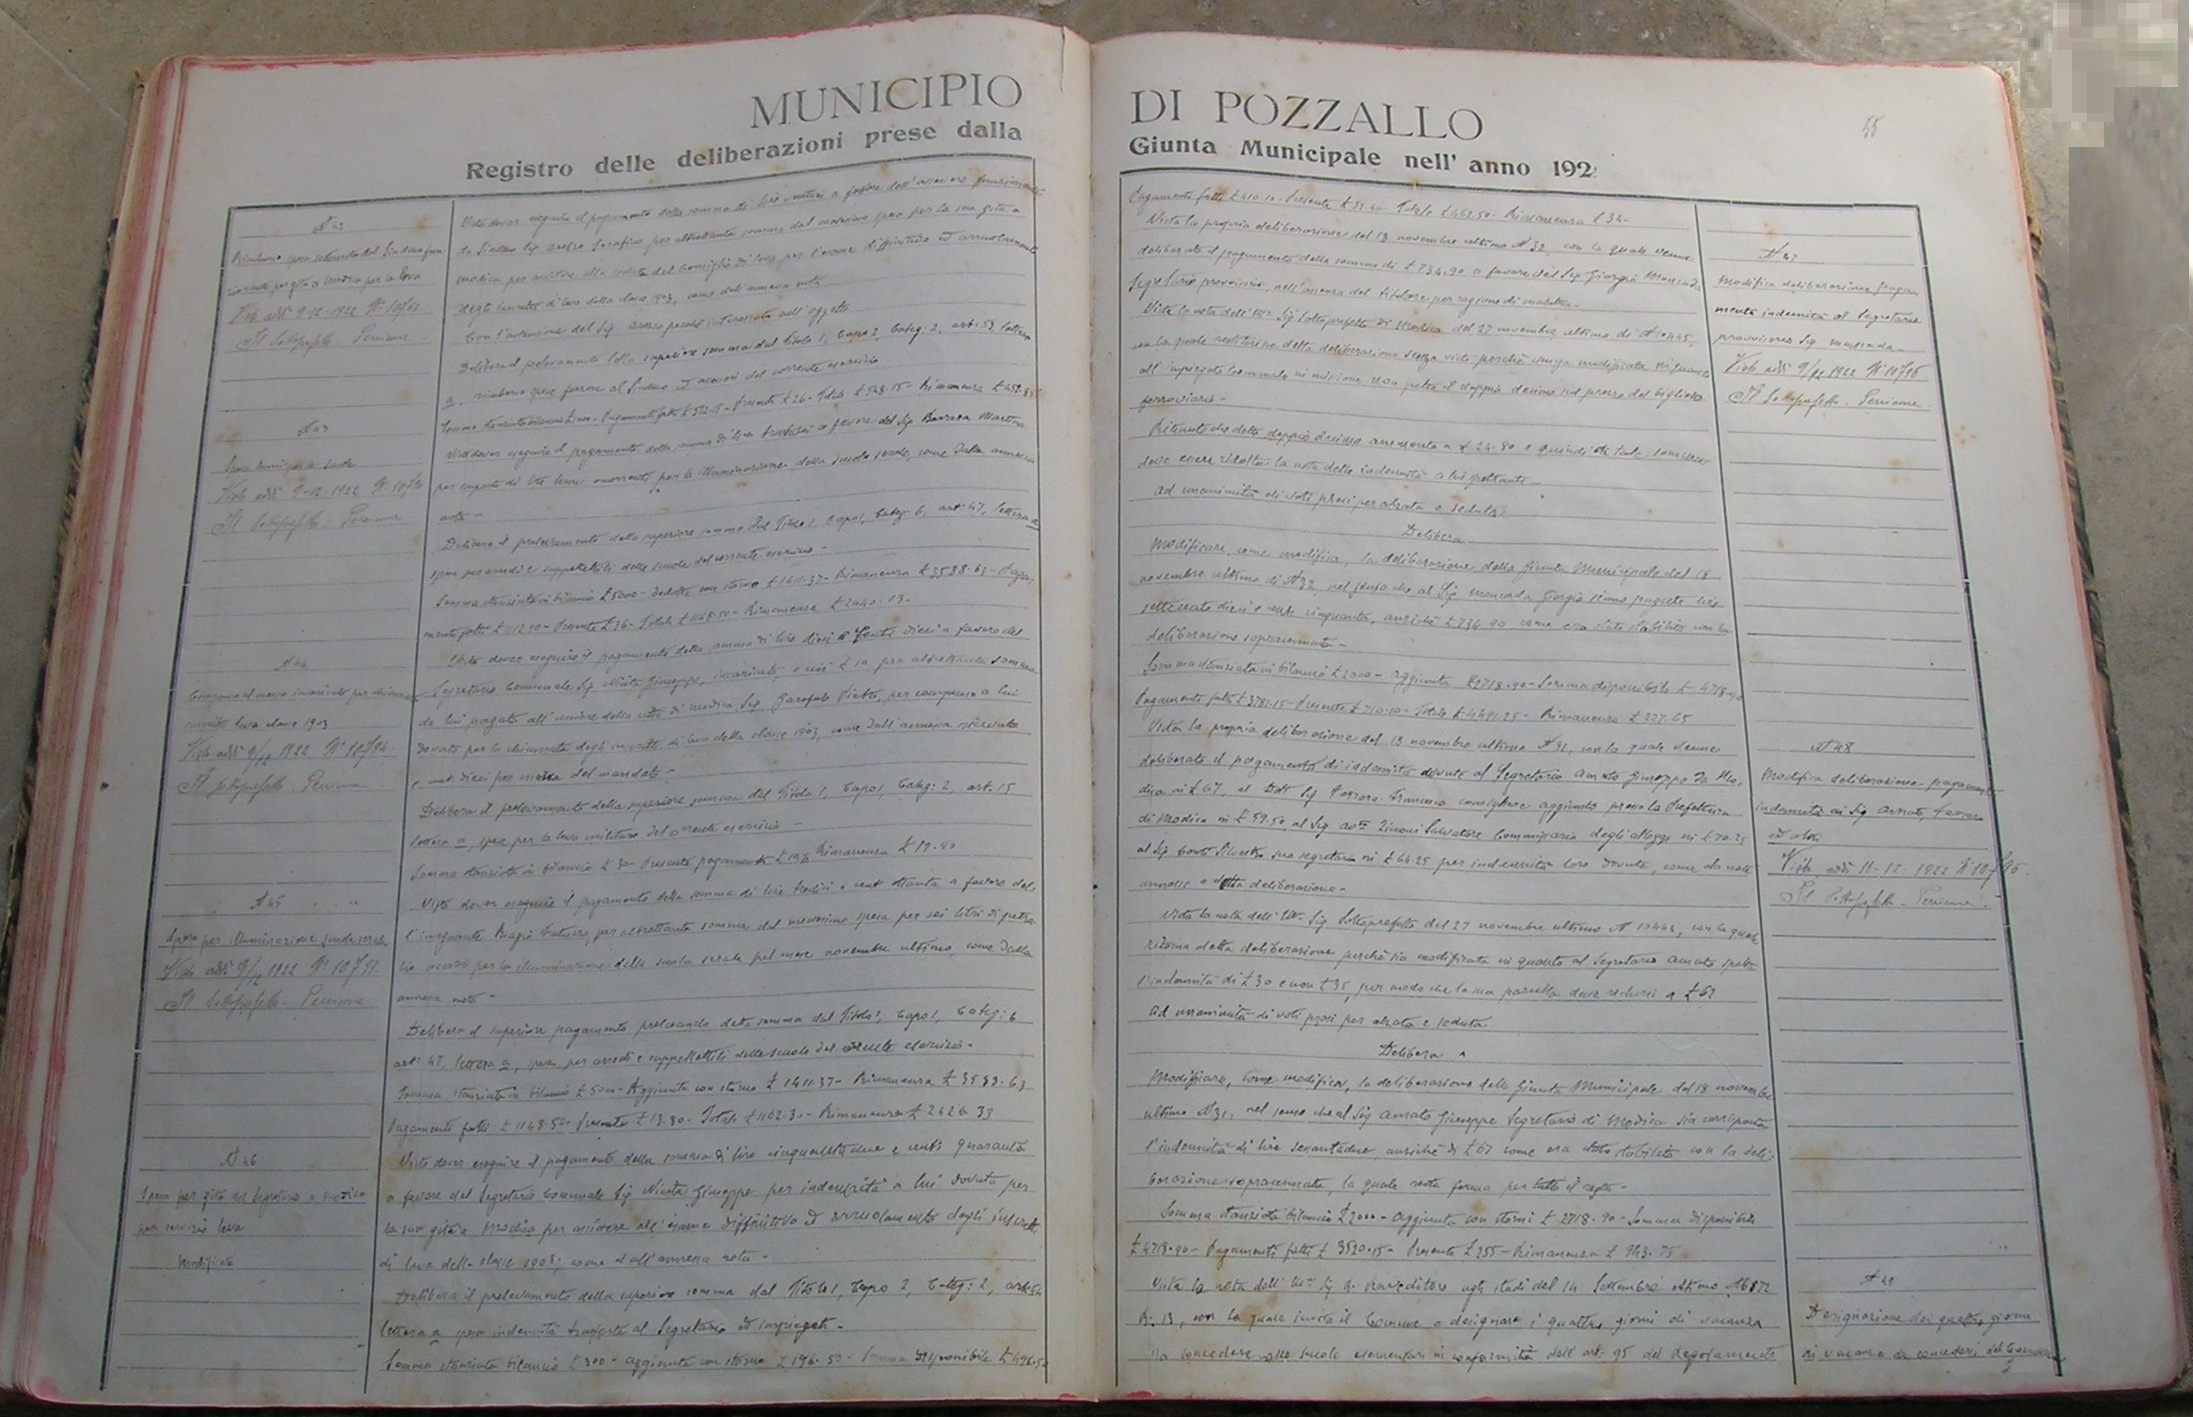 MUNICIPIO
Registro delle deliberazioni prese dalla
N 42
per gita a Modica per la leva
Visto addì 9-12-1922 N° 10793
Il Sottoprefetto. Percione
N 43
Visto addì 9-12-1922 N° 10790
Il Sottoprefetto. Percione
N 44
Compenso al messo incaricato per
leva classe 1903
Visto addì 9/12 1922 N° 10794
Il Sottoprefetto. Percione
N 45
Spesa per illuminazione scuole serali
Visto addì 9/12 1922 N° 10791
Il Sottoprefetto. Percione
N 46
Spesa per gita del Segretario a Modica
per servizio leva
Modificata
Visto dover eseguire il pagamento della somma di lire a favore dell'assessore funzionante
da Sindaco Sig. Serafino per altrettanta somma dal medesimo spesa per la sua gita a
Modica per assistere alla seduta del Consiglio di leva per l'esame definitivo ed arruolamento
degli inscritti di leva della classe 1903, come dall'annessa nota
Con l'astensione del Sig. perché interessato nell'oggetto
Delibera il prelevamento della superiore somma dal Titolo I, Capo I, Categ: 2, art: 53 lettera
a, rimborso spese forzose al Sindaco ed assessori del corrente esercizio
Presente £ 26 - Totale £ 548.15 - Rimanenza £ 451.85
Visto dover eseguire il pagamento della somma di lire a favore del Sig. Barrera Martino
per importo di lumi occorrenti per la illuminazione della scuola serale, come dalla annessa
nota -
Delibera il prelevamento della superiore somma dal Titolo I, Capo I, Categ: 6, art: 47, lettera a
spese per arredi e suppellettili delle scuole del corrente esercizio -
Somma stanziata in bilancio £ 5000 - dedotta con storno £ 1411.37 - Rimanenza £ 3588.63 - Paga-
menti fatti £ 1112.50 - Presente £ 36 - Totale £ 1148.50 - Rimanenza £ 2440.13 -
Visto dover eseguire il pagamento della somma di lire dieci e centi dieci a favore del
Segretario Comunale Sig. Nicita Giuseppe, incaricato, e cioè £ 10 per altrettanta somma
da lui pagata all'usciere della città di Modica Sig. Garofalo Pietro, per compenso a lui
dovuto per la chiamata degli inscritti di leva della classe 1903, come dall'annessa ricevuta
e cent. dieci per marca del mandato -
Delibera il prelevamento della superiore somma dal Titolo I, Capo I, Categ: 2, art. 15
lettera a, spese per la leva militare del corrente esercizio -
Somma stanziata in bilancio £ 30 - Presente pagamento £ 10.10 Rimanenza £ 19.90
Visto dover eseguire il pagamento della somma di lire tredici e cent ottanta a favore del-
l'insegnante Biagio, per altrettanta somma dal medesimo spesa per sei litri di petro-
lio per la illuminazione della scuola serale pel mese novembre ultimo, come dalla
annessa nota -
Delibera il superiore pagamento prelevando detta somma dal Titolo I, Capo I, Categ: 6
art: 47, lettera a, spese per arredi e suppellettili delle scuole del corrente esercizio -
Somma stanziata in bilancio £ 5000 - Aggiunta con storno £ 1411.37 - Rimanenza £ 3588.63
Pagamenti fatti £ 1148.50 - Presente £ 13.80 - Totale £ 1162.30 - Rimanenza £ 2426.33
Visto dover eseguire il pagamento della somma di lire cinquantadue e centi quaranta
a favore del Segretario Comunale Sig. Nicita Giuseppe per indennità a lui dovuta per
la sua gita a Modica per assistere all'esame diffinitivo ed arruolamento degli inscritti
di leva della classe 1903, come dall'annessa nota -
Delibera il prelevamento della superiore somma dal Titolo I, Capo 2, Categ: 2, art: 54
lettera a spese indennità trasferte al Segretario ed impiegati -
Somma stanziata bilancio £ 300 - aggiunta con storno £ 196.50 - Somma disponibile £ 496.50
DI POZZALLO
Giunta Municipale nell' anno 192
55
Pagamenti fatti £ 410.10 - Presente £ 52.40 - Totale £ 462.50 - Rimanenza £ 34 -
Vista la propria deliberazione del 18 novembre ultimo N 32, con la quale venne
deliberato il pagamento della somma di £ 734.90 a favore del Sig. Giorgio Moncada
Segretario provvisorio, nell'assenza del titolare per ragione di malattia -
Vista la nota dell'Ill° Sig Sottoprefetto di Modica del 27 novembre ultimo di N 10445,
con la quale restituiva detta deliberazione senza visto perchè venga modificata in quanto
all'impiegato Comunale in missione non spetta il doppio decimo sul prezzo del biglietto
ferroviario -
Ritenuto che detto doppio decimo ammonta a £ 24.80 e quindi di tale somma
deve essere ridotta la nota delle indennità a lui spettante -
Ad unanimità di voti presi per alzata e seduta
Delibera
Modificare, come modifica, la deliberazione della Giunta Municipale del 18
novembre ultimo di N 32 nel senso che al Sig. Moncada Giorgio siano pagate lire
settecento dieci e cent. cinquanta, anziché £ 734.90 come era stato stabilito con la
deliberazione sopracennata -
Somma stanziata in bilancio £ 2000 - aggiunta £ 2718.90 - Somma disponibile £ 4718.90
Pagamenti fatti £ 3781.15 - Presente £ 710.10 - Totale £ 4491.25 - Rimanenza £ 227.65
Vista la propria deliberazione del 18 novembre ultimo N 31, con la quale venne
deliberato il pagamento di indennità dovute al Segretario Amato Giuseppe da Mo-
dica in £ 67, al Dott Sig Ferrara Francesco consigliere aggiunto presso la Prefettura
di Modica in £ 59.50, al Sig avv Salvatore Commissario degli alloggi in £ 70.25
al Sig Conti Silvestro suo segretario in £ 64.25 per indennità loro dovute, come da note
annesse a detta deliberazione -
Vista la nota dell'Ill° Sig Sottoprefetto del 27 novembre ultimo N 10444, con la quale
ritorna detta deliberazione perchè sia modificata in quanto al Segretario Amato spetta
l'indennità di £ 30 e non £ 35, per modo che la sua parcella deve ridursi a £ 62
Ad unanimità di voti presi per alzata e seduta
Delibera
Modificare, come modifica, la deliberazione della Giunta Municipale del 18 novembre
ultimo N 31, nel senso che al Sig Amato Giuseppe Segretario di Modica sia corrisposta
l'indennità di lire sessantadue, anziché di £ 67 come era stato stabilito con la deli-
berazione sopracennata, la quale resta ferma per tutto il resto -
Somma stanziata bilancio £ 2000 - aggiunta con storni £ 2718.90 - Somma disponibile
£ 4718.90 - Pagamenti fatti £ 3520.15 - Presente £ 255 - Rimanenza £ 943.75
Vista la nota dell'Ill° Sig R. Provveditore agli studi del 14 Settembre ultimo N 6872
R. 13, con la quale invita il Comune a designare i quattro giorni di vacanza
da concedere alle scuole elementari in conformità dell'art. 95 del Regolamento
N 47
Modifica deliberazione paga-
mento indennità al Segretario
provvisorio Sig Moncada -
Visto addì 9/12 1922 N° 10796
Il Sottoprefetto. Percione
N 48
Modifica deliberazione pagamento
indennità ai Sig Amato, Ferrara
ed altri
Visto addì 11-12-1922 N° 10795.
Il Sottoprefetto - Percione -
N 49
Designazione dei quattro giorni
di vacanza da concedersi dal Comune